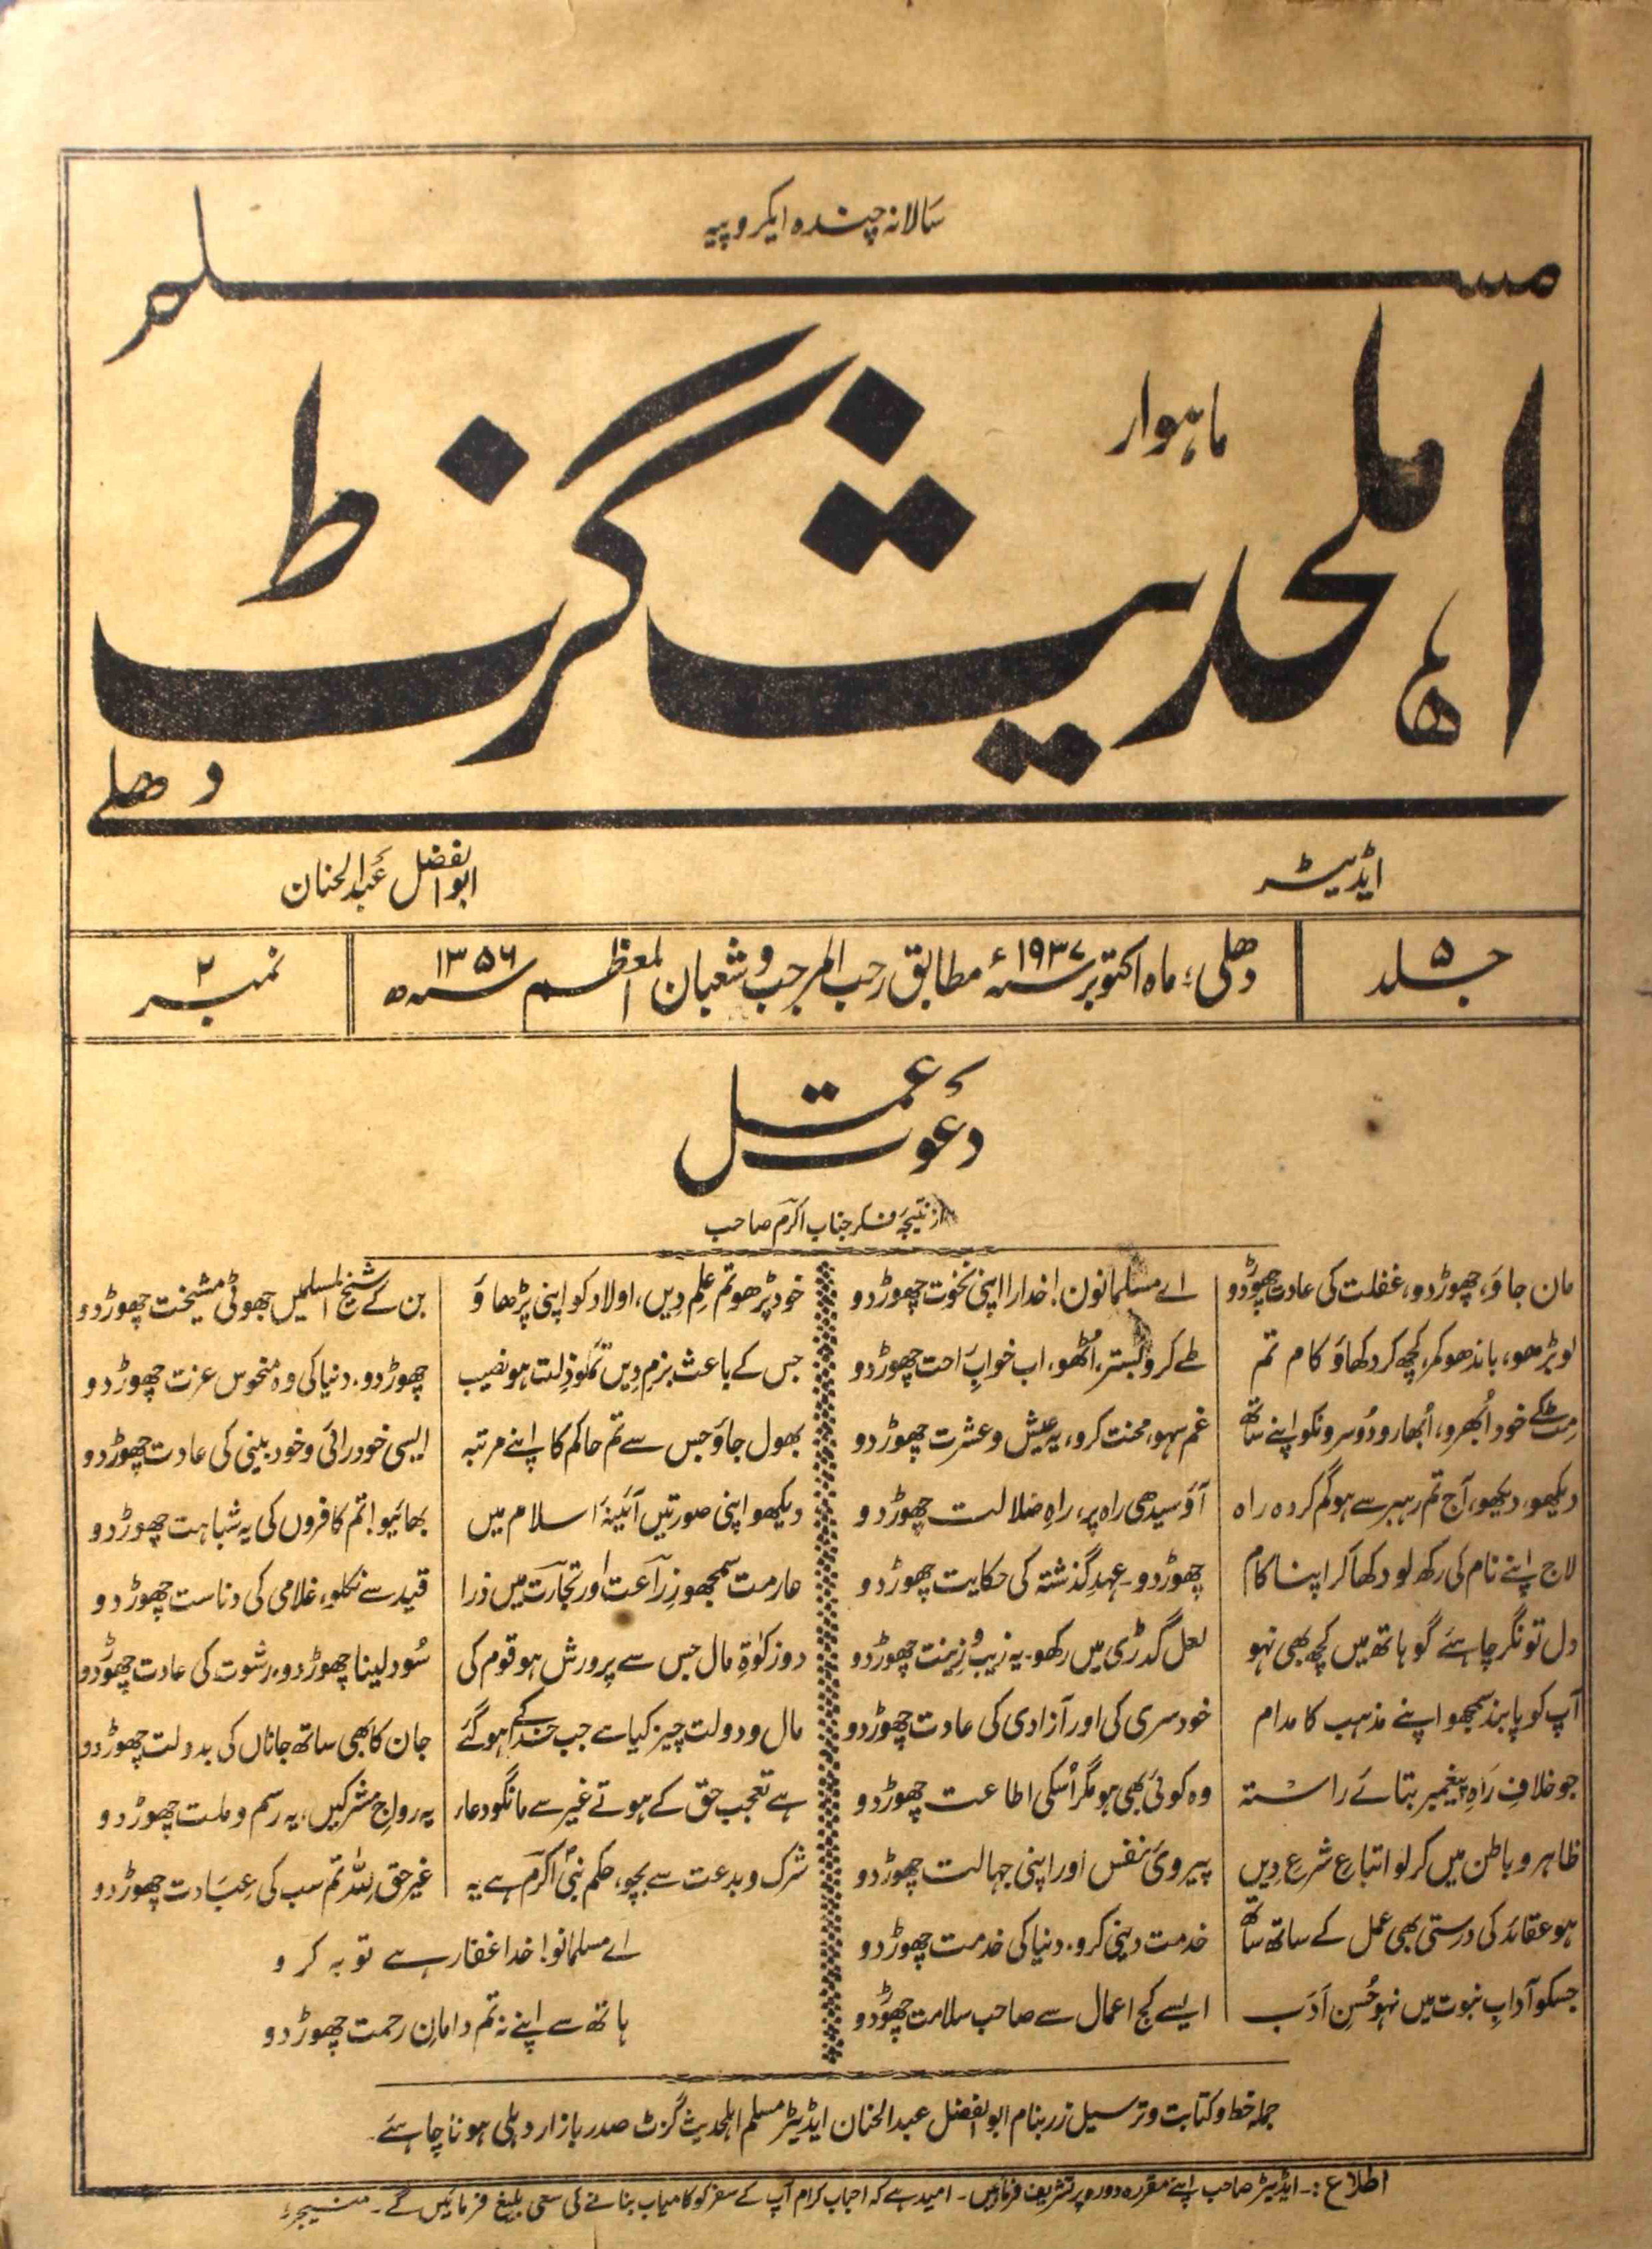 سالانہ چندہ ایکروپیہ
مسلم
ماہوار
اہلحدیث گزٹ
دھلی
ایڈیٹر
ابوالفضل عبدالحنان
جلد ۵
دھلی، ماہ اکتوبر سنہ ۱۹۳۷ء مطابق رجب المرجب و شعبان المعظم سنہ ۱۳۵۶ھ
نمبر ۲
دعوت عمل
از نتیجۂ فکر جناب اکرم صاحب
مان جاؤ، چھوڑ دو، غفلت کی عادت چھوڑدو
اے مسلمانون! خدارا اپنی نخوت چھوڑدو
لو بڑھو، باندھو کمر، کچھ کر دکھاؤ کام تم
طے کرو بستر، اُٹھو، اب خوابِ راحت چھوڑدو
مِٹ کے خود اُبھرو، اُبھارو دُوسرونکو اپنے ساتھ
غم سہو، محنت کرو، یہ عیش و عشرت چھوڑدو
دیکھو، دیکھو، آج تم رہبر سے ہو گم گردہ راہ
آؤ سیدھی راہ پر، راہِ ضلالت چھوڑدو
لاج اپنے نام کی رکھ لو دکھا کر اپنا کام
چھوڑدو۔ عہدِ گذشتہ کی حکایت چھوڑدو
دل تونگر چاہئے گو ہاتھ میں کچھ بھی نہو
لعل گدڑی میں رکھو۔ یہ زیب و زینت چھوڑدو
آپ کو پابند سمجھو اپنے مذہب کا مدام
خودسری کی اور آزادی کی عادت چھوڑدو
جو خلافِ راہِ پیغمبر بتائے راستہ
وہ کوئی بھی ہو مگر اُسکی اطاعت چھوڑدو
ظاہر و باطن میں کر لو اتباعِ شرعِ دِیں
پیرویٔ نفس اور اپنی جہالت چھوڑدو
ہو عقائد کی درستی بھی عمل کے ساتھ ساتھ
خدمت دینی کرو۔ دنیا کی خدمت چھوڑدو
جسکو آدابِ نبوت میں نہو حُسنِ اَدَب
ایسے کج اعمال سے صاحب سلامت چھوڑدو
خود پڑھو تم علمِ دیں، اولاد کو اپنی پڑھاؤ
بن کے شیخ المسلمیں جھوٹی مشیخت چھوڑدو
جس کے باعث بزمِ دیں تمکو ذِلت ہو نصیب
چھوڑدو۔ دنیا کی وہ منحوس عزت چھوڑدو
بھول جاؤ جس سے تم حاکم کا اپنے مرتبہ
ایسی خودرائی و خودبینی کی عادت چھوڑدو
دیکھو اپنی صورتیں آئینۂ اسلام میں
بھائیو! تم کافروں کی یہ شباہت چھوڑدو
عار مت سمجھو زراعت اور تجارت میں ذرا
قید سے نکلو، غلامی کی دناست چھوڑدو
دو زکوٰۃِ مال جس سے پرورش ہو قوم کی
سُود لینا چھوڑدو۔ رشوت کی عادت چھوڑدو
مال و دولت چیز کیا ہے جب خدا کے ہوگئے
جان کا بھی ساتھ جاناں کی بدولت چھوڑدو
ہے تعجب حق کے ہوتے غیر سے مانگو دعا،
یہ رواجِ مشرکیں، یہ رسم و ملت چھوڑدو
شرک و بدعت سے بچو، حکمِ نبیٔ اکرم ہے یہ
غیر حق للہ تم سب کی عبادت چھوڑدو
اے مسلمانو! خدا غفار ہے توبہ کرو
ہاتھ سے اپنے نہ تم دامانِ رحمت چھوڑدو
جملہ خط و کتابت و ترسیل زر بنام ابوالفضل عبدالحنان ایڈیٹر مسلم اہلحدیث گزٹ صدر بازار دہلی ہونا چاہئے۔
اطلاع:۔ ایڈیٹر صاحب اپنے مقررہ دورہ پر تشریف فرما ہیں۔ امید ہے کہ احباب کرام آپ کے سفر کو کامیاب بنانے کی سعی بلیغ فرمائیں گے۔ منیجر